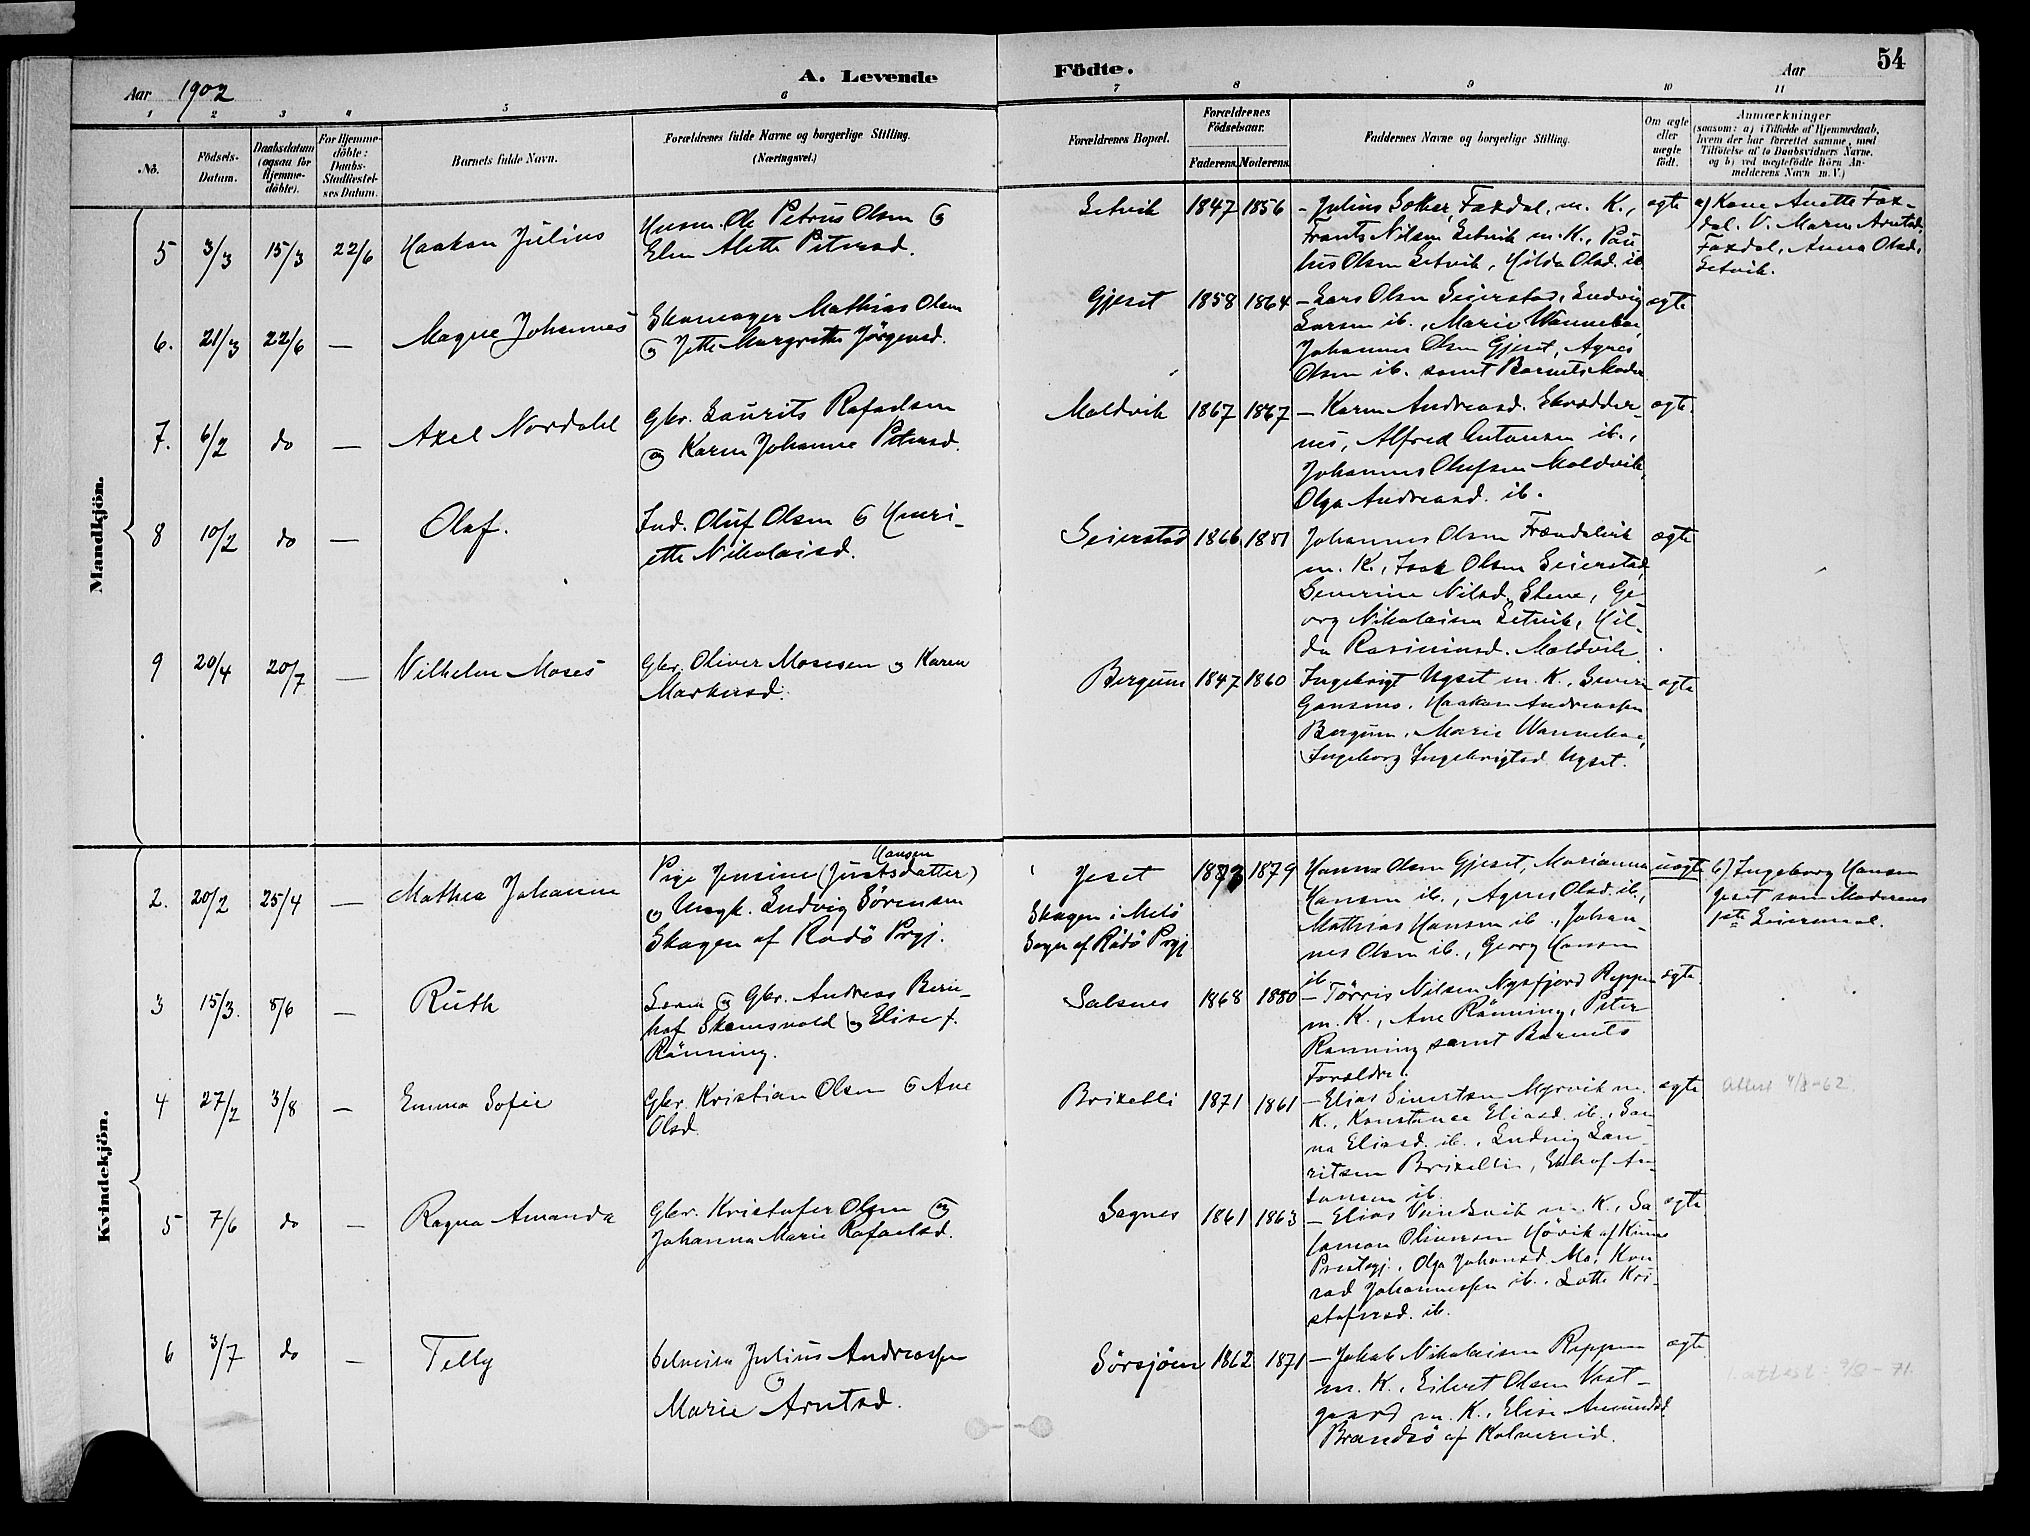 54
A. Levende Födte.
Aar 1902
Aar
1 2 3 4 5 6 7 8 9 10 11
No.
Födsels-Datum.
Daabsdatum (ogsaa for Hjemme-döbte).
For Hjemme-döbte: Daabs-Stadfestel-ses Datum.
Barnets fulde Navn.
Forældrenes fulde Navne og borgerlige Stilling. (Næringsvei.)
Forældrenes Bopæl.
Forældrenes Födselsaar.
Faderens. Moderens.
Faddernes Navne og borgerlige Stilling.
Om ægte eller uægte født.
Anmærkninger
(saasom: a) i Tilfælde af Hjemmedaab, hvem der har forrettet samme, med Tilföielse af to Daabsvidners Navne, og b) ved uægtefödte Börn An-melderens Navn m. V.)
Mandkjön.
5 3/3 15/3 22/6 Haakon Julius
Husm. Ole Petrus Olsen og
Elen Alette Petersd.
Setvik 1847 1856
Faxdal, m. K.,
Frants Nilsen Setvik m. K., Pau-
lus Olsen Setvik, Hilda Olsd. ib.
ægte
a) Kone Anette Fax-
dal. V. Maren Arntsd.
Faxdal, Anna Olsd.
Setvik.
6. 21/3 22/6 — Magne Johannes
Skomager Mathias Olsen
og Jette Margrethe Jörgensd.
Gjeset 1858 1864
— Lars Olsen Seierstad, Ludvig
Larsen ib., Marie Wannebo,
Johannes Olsen Gjeset, Agnes
Olsen ib. samt Barnets Moder
ægte
7. 6/2 do — Axel Nordahl
Gbr. Laurits Rafaelsen
og Karen Johanne Petersd.
Moldvik 1867 1867
— Karen Andreasd. Skrædder-
nes, Alfred Antonsen ib.,
Johannes Olufsen Moldvik,
Olga Andreasd. ib.
ægte.
8 10/2 do — Olaf.
Ind. Oluf Olsen og Henri-
ette Nikolaisd.
Seierstad 1866 1881
Johannes Olsen
m. K., Isak Olsen Seierstad,
Severine Nilsd. Skene, Ge-
org Nikolaisen Setvik, Hil-
da Rasimusd. Moldvik.
ægte
9 20/4 20/7 — Vilhelm Moses
Gbr. Oliver Mosesen og Karen
Markusd.
Bergum 1847 1860
Ingebrigt Ugset m. K., Severin
Gansmo, Haakon Andreassen
Bergum, Marie Wannebo,
Ingeborg Ingebrigtsd. Ugset.
ægte
Kvindekjön.
2. 20/2 25/4 — Mathea Johanne
Hansen
Pige Jensine (Justsdatter)
og Ungk. Ludvig Sörensen
Skagen af Rödö Prgj.
Jeset
Skagen i Melö
Sogn af Rödö Prgj
1873 1879
Hanna Olsen Gjeset, Marianna
Hansen ib., Agnes Olsd. ib.,
Mathias Hansen ib., Johan-
nes Olsen ib., Georg Hansen
ib
uægte
b) Ingeborg Hansen
Jeset som Moderens
1ste Leiermaal.
3 15/3. 8/6 — Ruth
og Gbr. Andreas Bern-
hof Skamsvold og Elise f.
Rönning.
Salsnes 1868 1880
— Törris Nilsen Nysfjord Reppen
m. K., Ane Rönning, Peter
Rönning samt Barnets
Forældre.
ægte.
4 27/2 3/8 — Emma Sofie
Gbr. Kristian Olsen og Ane
Olsd.
Brixelli 1871 1861
— Elias Sivertsen Myrvik m.
K., Konstance Eliasd. ib., San-
na Eliasd. ib., Ludvig Lau-
ritsen Brixelli, An-
tonsen ib.
ægte
attest 4/8-62.
5 7/6 do — Ragna Amanda
Gbr. Kristofer Olsen og
Johanna Marie Rafaelsd.
Sagnes 1861 1863
— Elias Vandsvik m. K., Sa-
lamon Oliversen Hövik af
Prestegj., Olga Johansd. Mo, Kon-
rad Johannessen ib., Lotte Kri-
stofersd. ib.
ægte
6 3/7 do — Telly
Selveier Julius Andreassen
og
Marie Arntsd.
Sörsjöen 1862 1871
— Jakob Nikolaisen Reppen
m. K., Eilert Olsen Vest-
gaard m. K., Elise Amundsd.
Brandsö af Kolvereid.
ægte
attest 9/8-71.